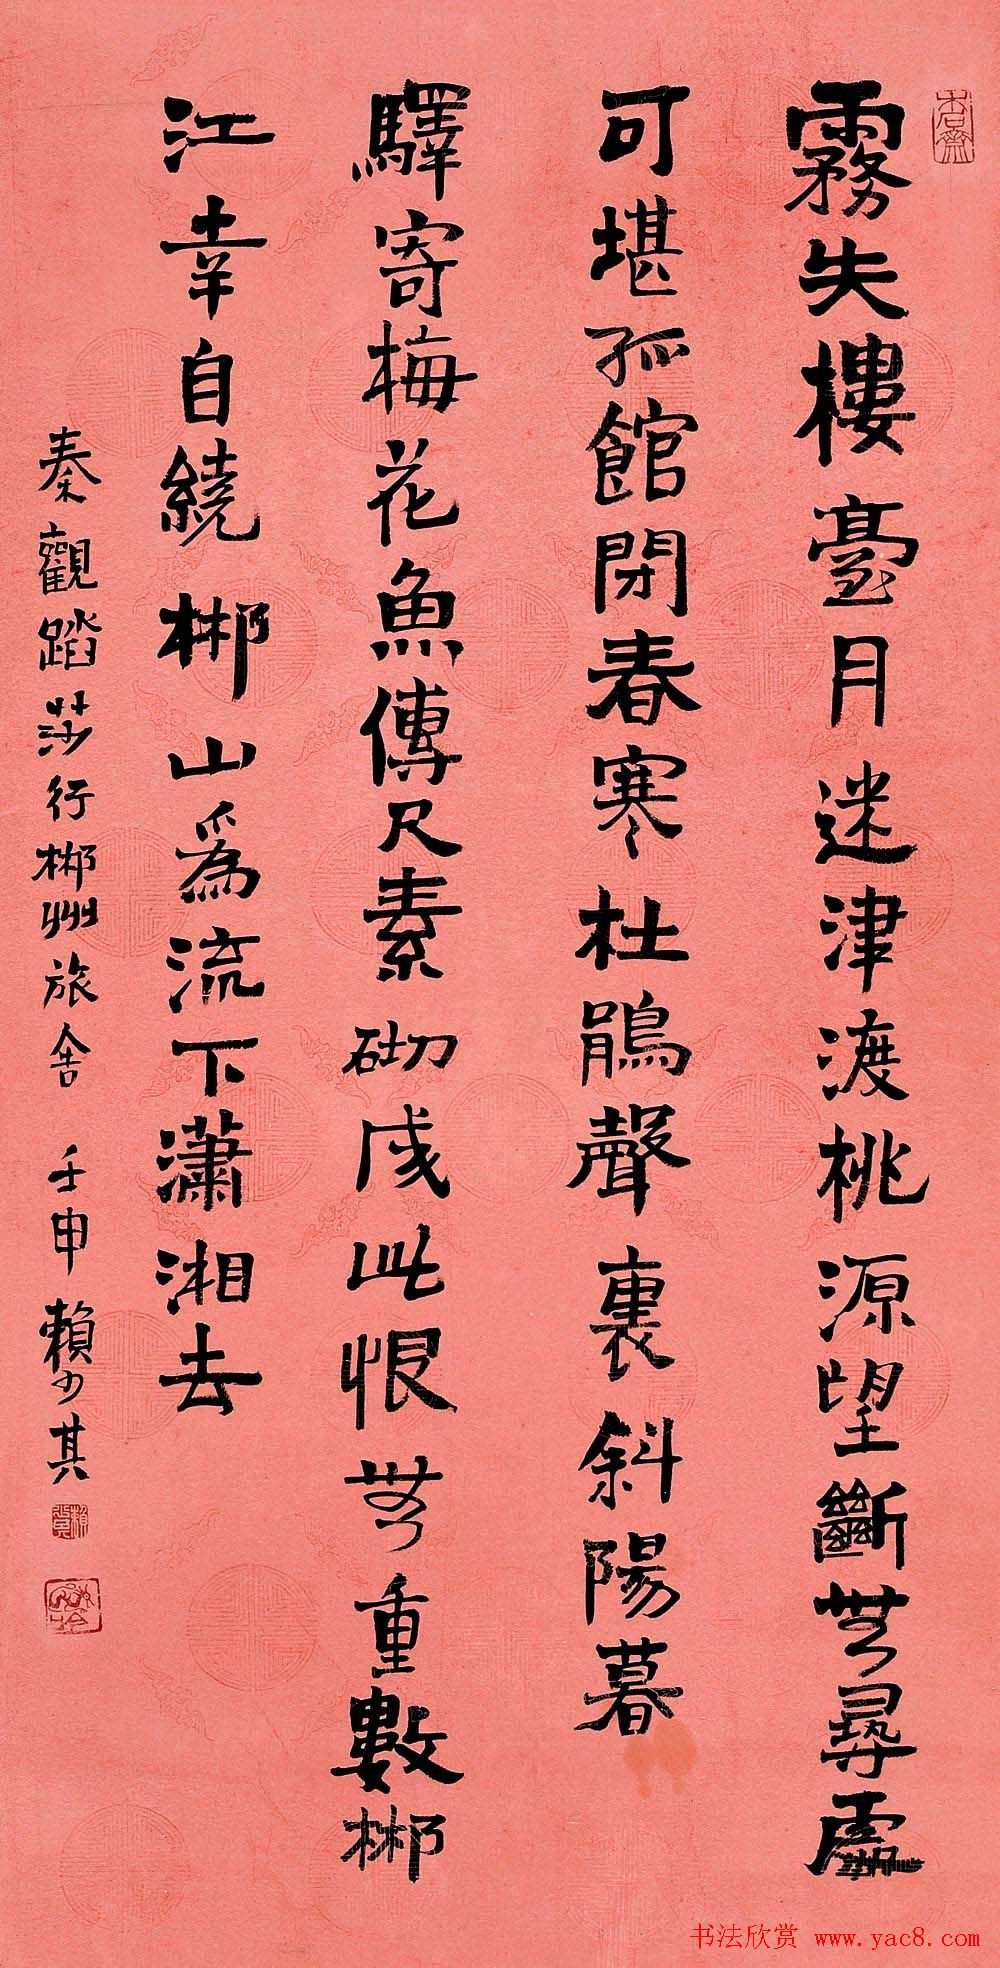 霧失樓臺月迷津渡桃源望斷無尋處
可堪孤館閉春寒杜鵑聲裏斜陽暮
驛寄梅花魚傳尺素砌成此恨無重數郴
江幸自繞郴山為流下瀟湘去
秦觀踏莎行郴州旅舍 壬申賴少其
书法欣赏 www.yac8.com